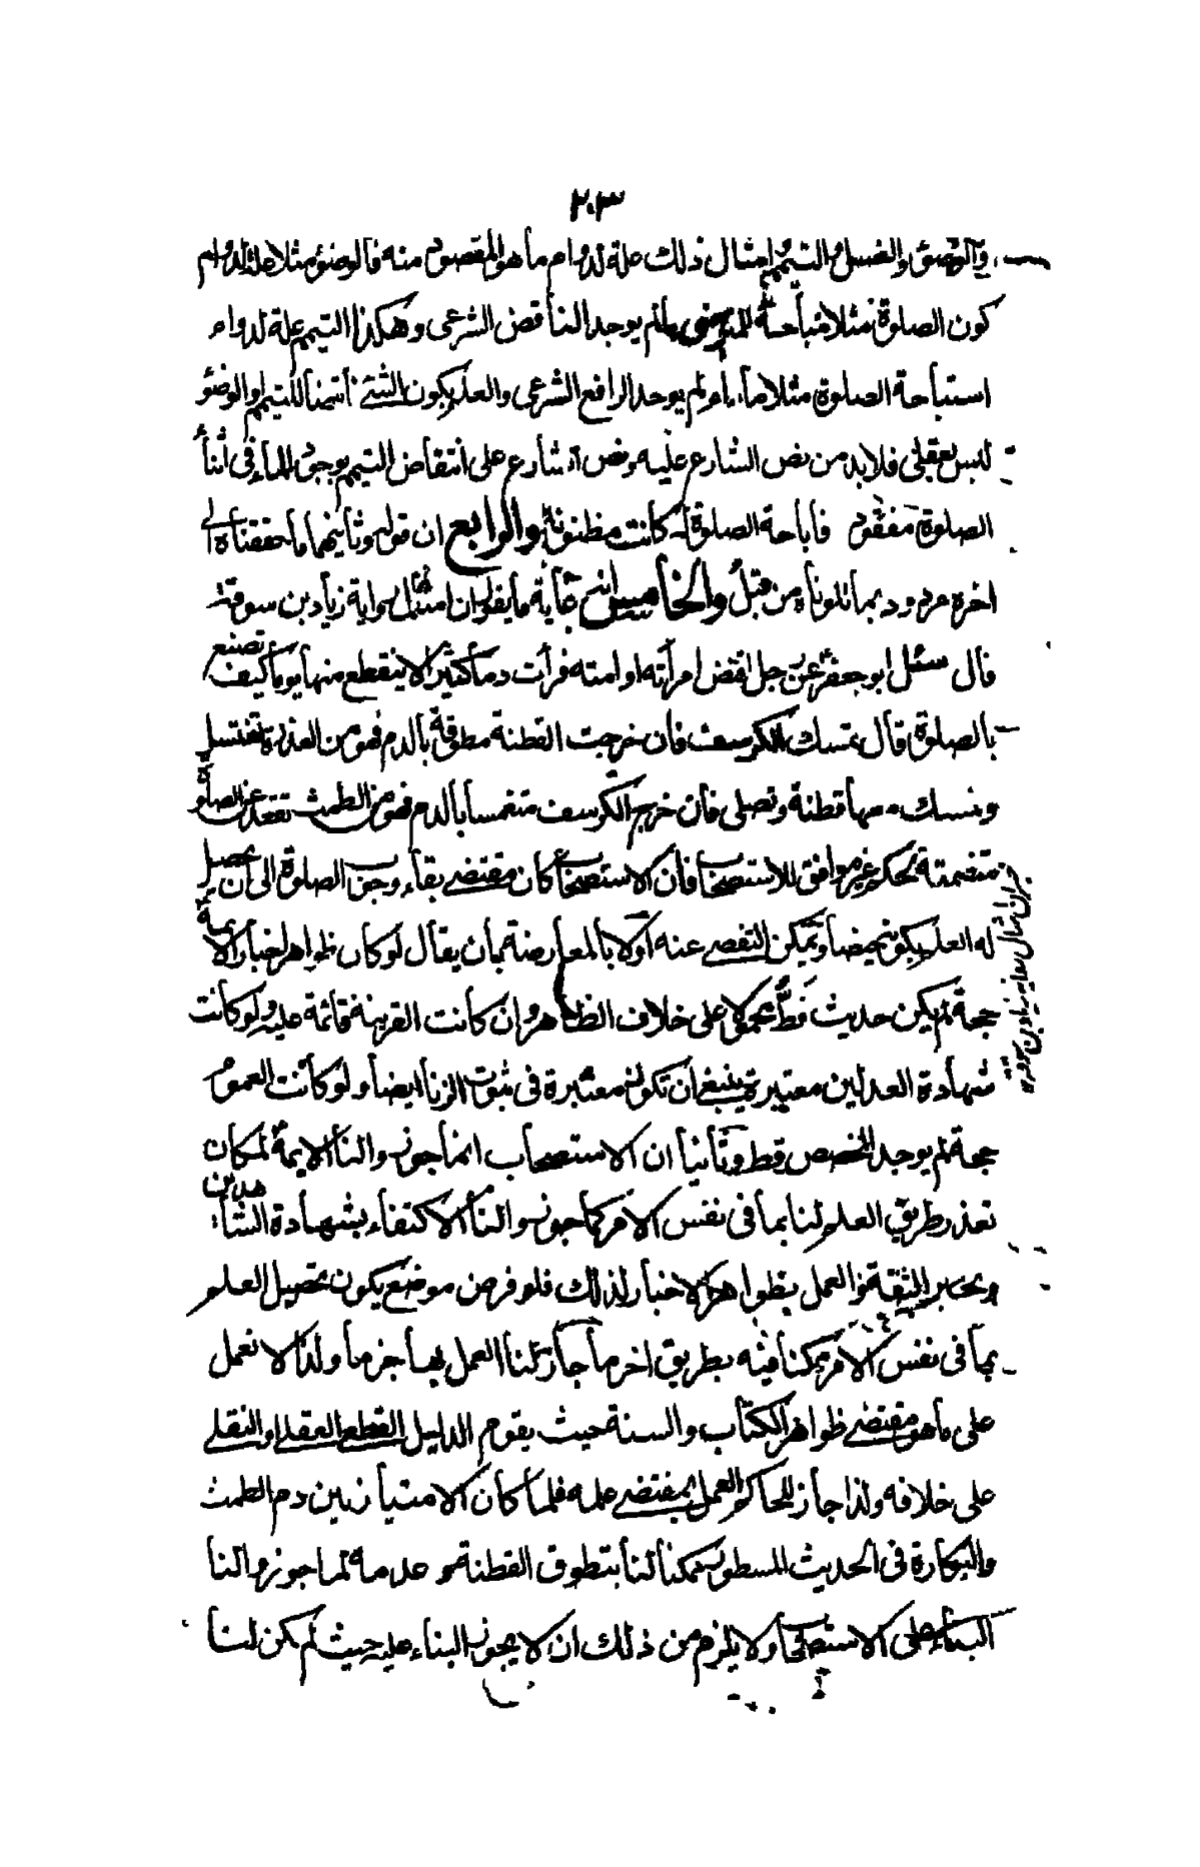 ٢٠٣
والوضوء والغسل والتيمم امثال ذلك علة لدوام ما هو المقصود منه فالوضوء مثلا علة لدوام
كون الصلوة مثلا مباحة للمتوضى ما لم يوجد الناقض الشرعى وهكذا التيمم علة لدوام
استباحة الصلوة مثلا مادام لم يوجد الرافع الشرعى والعلم بكون الشئ ناقضا للتيمم او الوضوء
ليس بعقلى فلابد من نص الشارع عليه ونص الشارع على انتقاض التيمم بوجود الماء فى اثناء
الصلوة مفقود فاباحة الصلوة كانت مظنونة والرابع ان قوله وثانيهما ما حققناه الى
اخره مردود بما تلوناه من قبل والخامس انه غاية ما يقول ان امثال رواية زياد بن سوقة
قال سئل ابو جعفر عن رجل افتض امرأته او امته فرأت دما كثيرا لا ينقطع منها يوما كيف تصنع
بالصلوة قال تمسك الكرسف فان خرجت القطنة مطوقة بالدم فهو من العذرة تغتسل
وتمسك معها قطنة وتصلى فان خرج الكرسف منغمسا بالدم فهو من الطمث تقعد عن الصلوة
متضمنة لحكم غير موافق للاستصحاب فان الاستصحاب كان مقتضى بقاء وجوب الصلوة الى ان يحصل
له العلم بكونه حيضا ويمكن التفصى عنه اولا بالمعارضة بان يقال لو كان ظواهر اخبار الائمة
حجة لم يكن حديث قط محمولا على خلاف الظاهر وان كانت القرينة قائمة عليه ولو كانت
شهادة العدلين معتبرة ينبغى ان تكون معتبرة فى ثبوت الزنا ايضا ولو كانت العموم
حجة لم يوجد المخصص قط وثانيا ان الاستصحاب انما جوزوا لنا الائمة لمكان
تعذر طريق العلم لنا بما فى نفس الامر كما جوزوا لنا الاكتفاء بشهادة الشاهدين
العمل بظواهر الاخبار لذلك فلو فرض موضع يكون تحصيل العلم
بما فى نفس الامر ممكنا فيه بطريق اخر ما جاز لنا العمل بها جزما ولذا لا نعمل
على ما هو مقتضى ظواهر الكتاب والسنة حيث يقوم الدليل القطعى العقلى او النقلى
على خلافه ولذا جاز للحاكم العمل بمقتضى علمه فلما كان الامتياز بين دم الطمث
والبكارة فى الحديث المسطور ممكنا لنا بتطوق القطنة وعدمه لما جوزوا لنا
البناء على الاستصحاب ولا يلزم من ذلك ان لا يجوز البناء عليه حيث لم يكن لنا
ان امثال رواية زياد بن سوقة